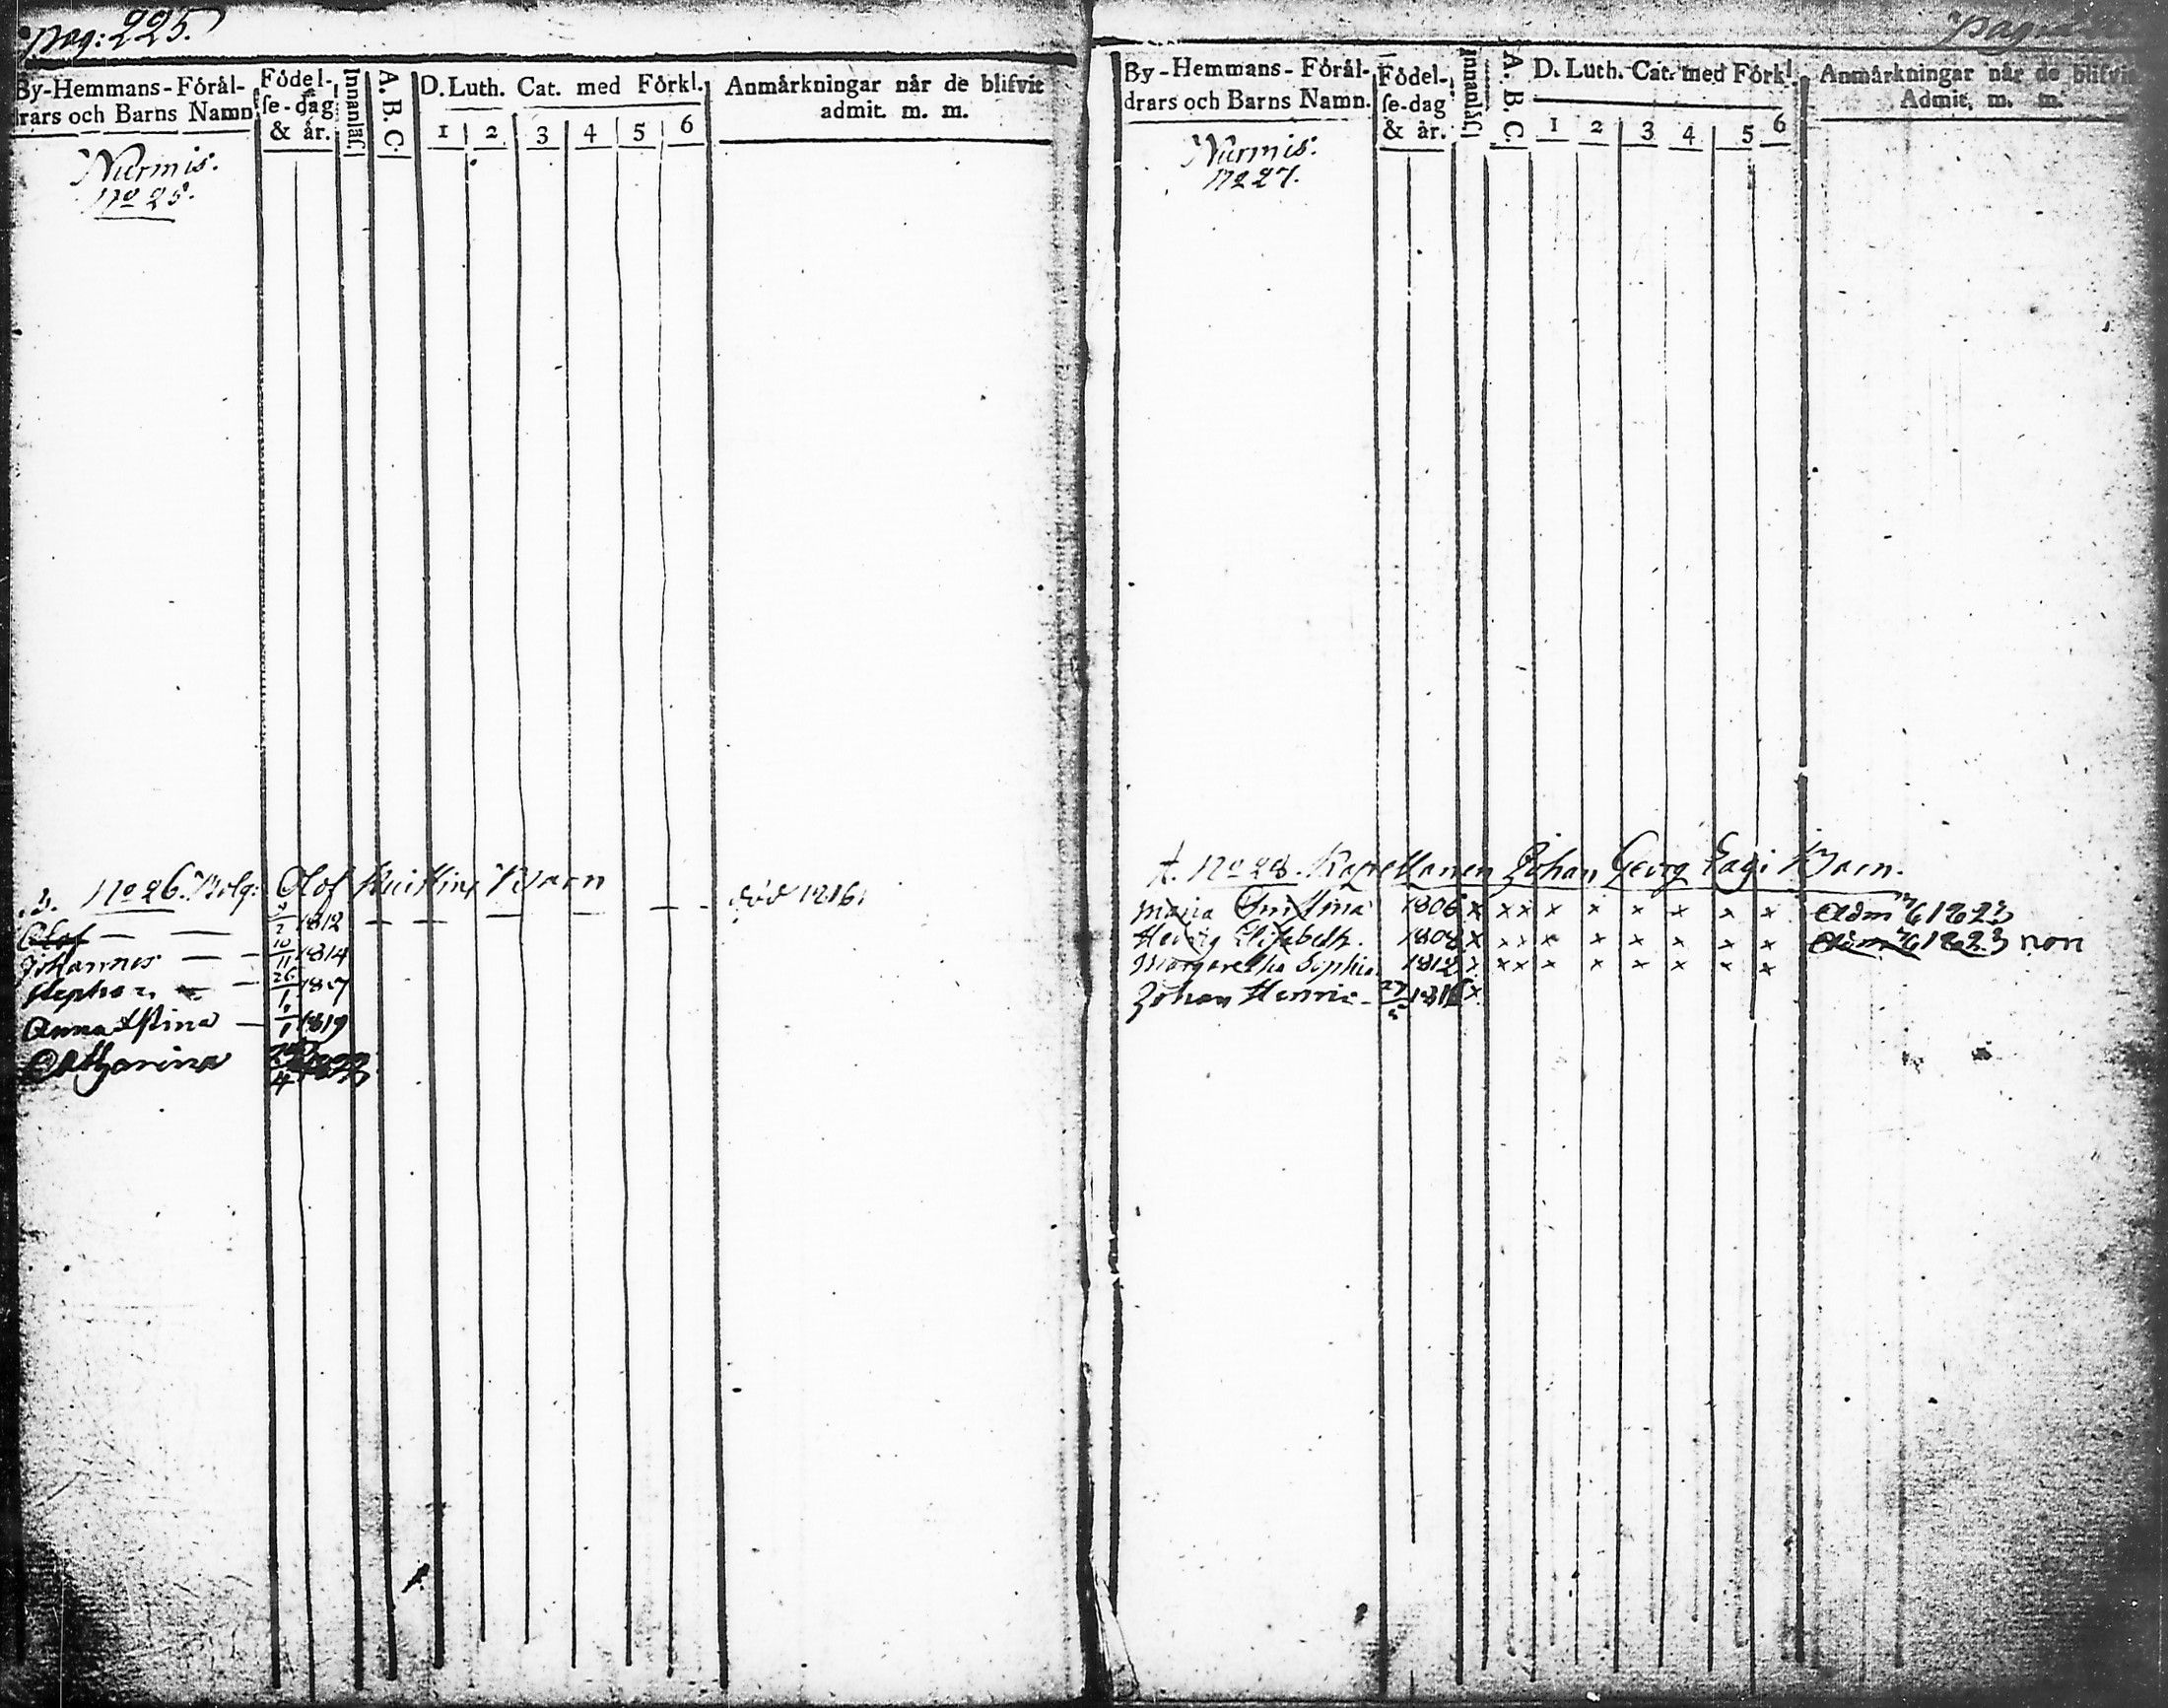 Pag: 225.
By-Hemmans-Föräl-
drars och Barns Namn
Födel-
se-dag
& år.
Innanläs.
A. B. C.
D. Luth. Cat. med Förkl.
1 2 3 4 5 6
Anmärkningar når de blifvit
admit. m. m.
Nurmis.
No 25.
No 26. Bolg: Olof Barn
Olof — — 1812 — — — — — — död 1816.
Johannes — — 10/11 1814
Stephan — 26/1 1817
Anna Stina — 1/1 1819
Catharina
Pag
By-Hemmans-Föräl-
drars och Barns Namn.
Födel-
se-dag
& år.
Innanläs.
A. B. C.
D. Luth. Cat. med Förkl.
1 2 3 4 5 6
Anmärkningar når de blifvit
Admit, m. m.
Nurmis.
No 27.
No 28. Kapellanen Johan Georg Barn.
Maria Christina 1806 x x x x x x x x x Adm 1823
Hedvig Elisabeth. 1808 x x x x x x x x x 1823 non
Margaretha Sophia 1812 x x x x x x x x x
Johan Henric - 27/5 x